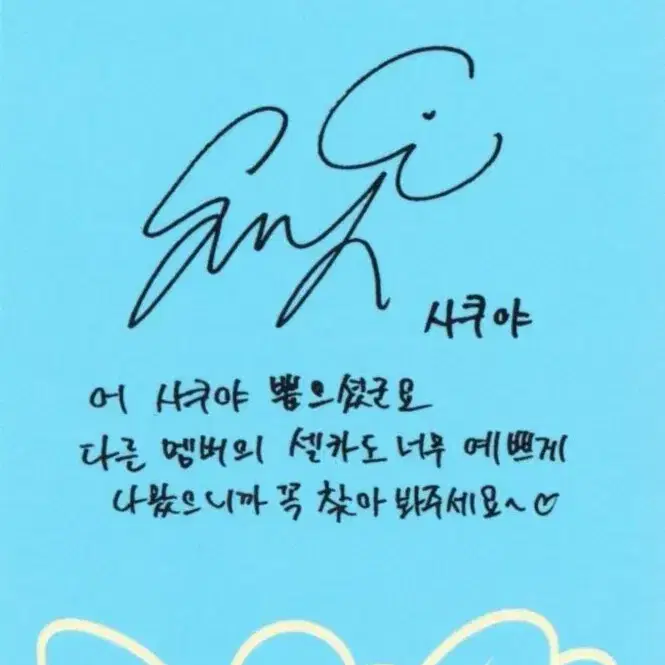 사쿠야
어 사쿠야 뽑으셨군요
다른 멤버의 셀카도 너무 예쁘게
나왔으니까 꼭 찾아 봐주세요~♡